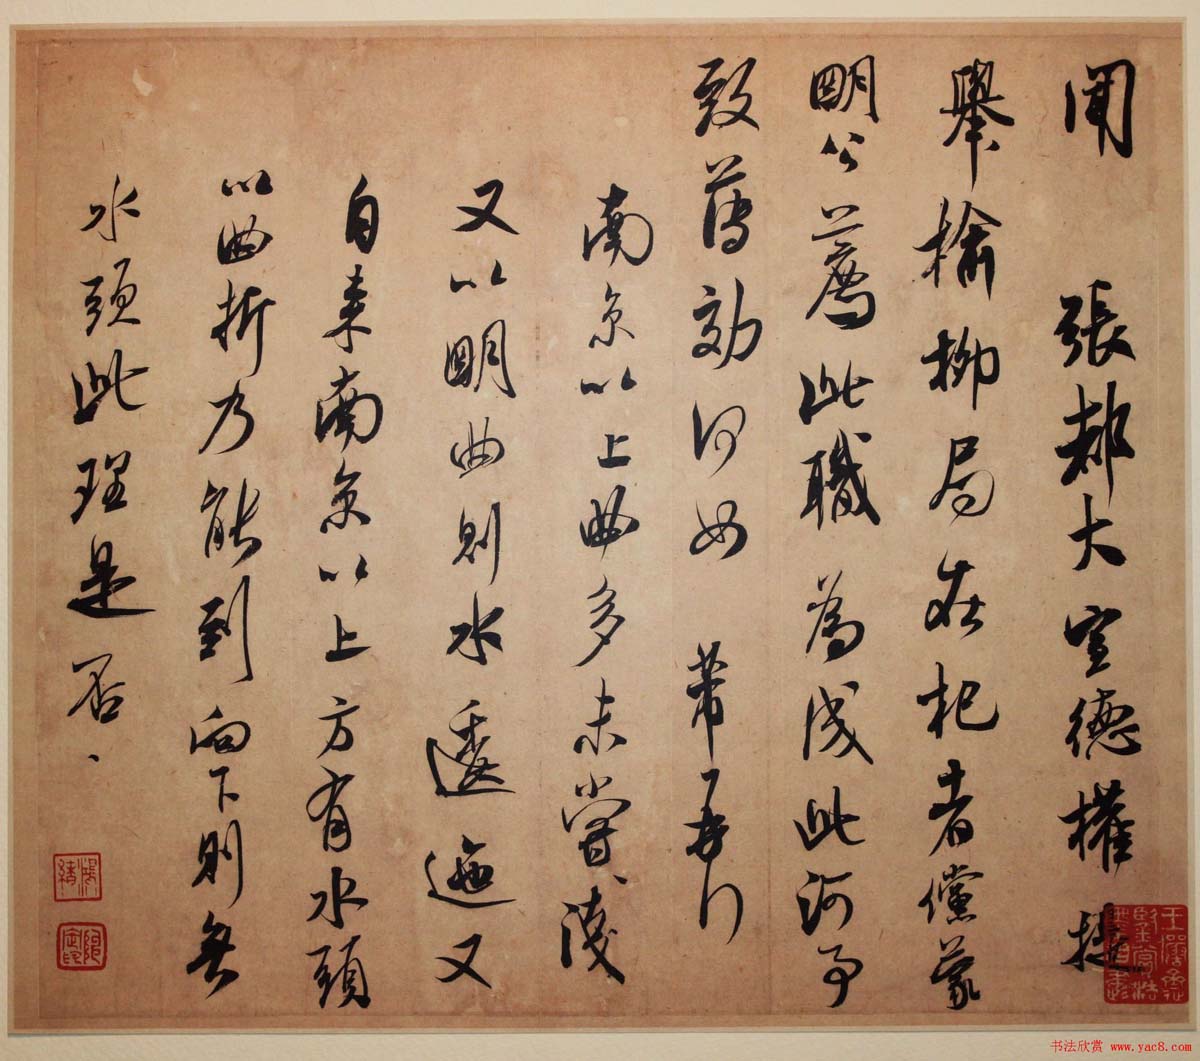 聞 張都大宣德權提
舉榆柳局在杞者儻蒙
明公薦此職為成此河事
致薄効何如 芾再行
南京以上曲多未嘗淺
又以明曲則水逶迤又
自來南京以上方有水頭
以曲折乃能到向下則無
水頭此理是否、
书法欣赏 www.yac8.com